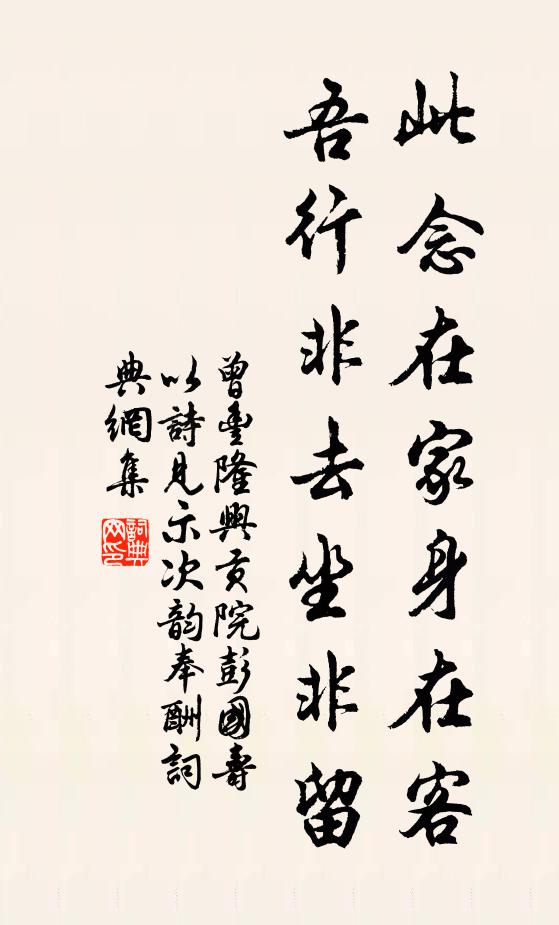 此念在家身在客
吾行非去坐非留
曾豊隆興貢院彭國壽
以詩見示次韵奉酬詞
典網集
詞典
网印